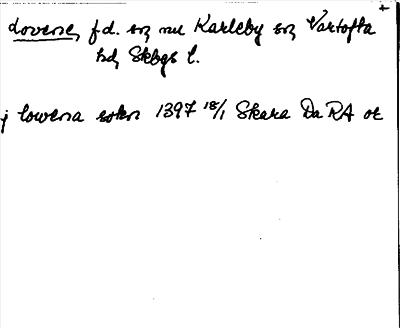 Lovene, f.d. sn nu Karleby sn Vartofta
hd Skbgs l.
j lowena sokn 1397 18/1 Skara Da RA or